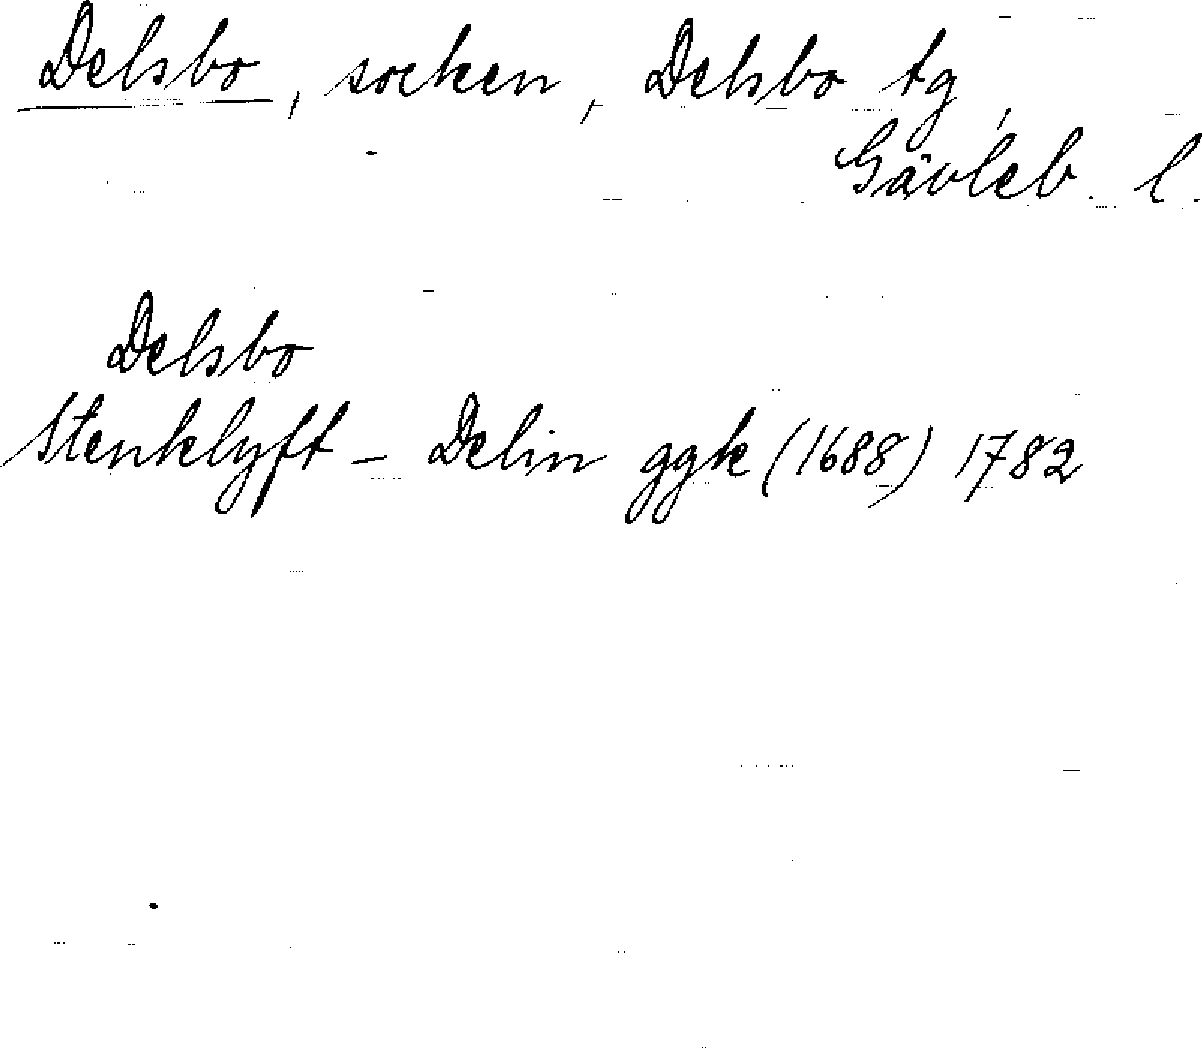 Delsbo, socken, Delsbo tg,
Gävleb. l.
Delsbo
Stenklyft – Delin ggk (1688) 1782